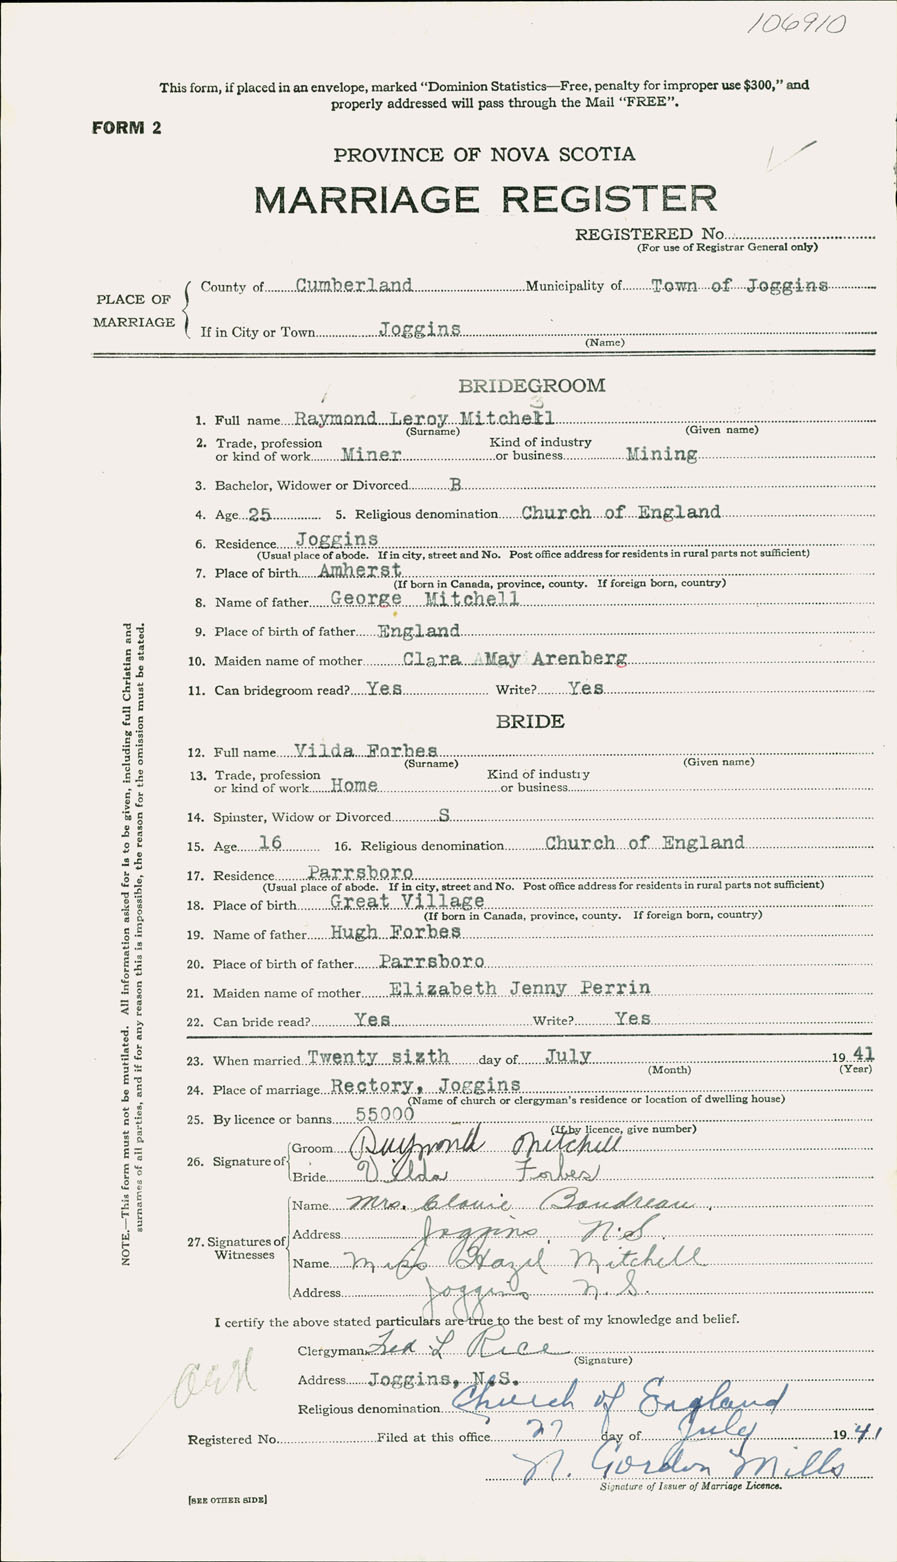 106910
This form, if placed in an envelope, marked “Dominion Statistics—Free, penalty for improper use $300,” and
properly addressed will pass through the Mail “FREE”.
FORM 2
PROVINCE OF NOVA SCOTIA
MARRIAGE REGISTER
REGISTERED No.
(For use of Registrar General only)
PLACE OF MARRIAGE
County of Cumberland Municipality of Town of Joggins
If in City or Town Joggins
(Name)
BRIDEGROOM
1. Full name Raymond Leroy Mitchell
(Surname) (Given name)
2. Trade, profession or kind of work Miner Kind of industry or business Mining
3. Bachelor, Widower or Divorced B
4. Age 25 5. Religious denomination Church of England
6. Residence Joggins
(Usual place of abode. If in city, street and No. Post office address for residents in rural parts not sufficient)
7. Place of birth Amherst
(If born in Canada, province, county. If foreign born, country)
8. Name of father George Mitchell
9. Place of birth of father England
10. Maiden name of mother Clara May Arenberg
11. Can bridegroom read? Yes Write? Yes
BRIDE
12. Full name Vilda Forbes
(Surname) (Given name)
13. Trade, profession or kind of work Home Kind of industry or business
14. Spinster, Widow or Divorced S
15. Age 16 16. Religious denomination Church of England
17. Residence Parrsboro
(Usual place of abode. If in city, street and No. Post office address for residents in rural parts not sufficient)
18. Place of birth Great Village
(If born in Canada, province, county. If foreign born, country)
19. Name of father Hugh Forbes
20. Place of birth of father Parrsboro
21. Maiden name of mother Elizabeth Jenny Perrin
22. Can bride read? Yes Write? Yes
23. When married Twenty sixth day of July 19 41
(Month) (Year)
24. Place of marriage Rectory, Joggins
(Name of church or clergyman's residence or location of dwelling house)
25. By licence or banns 55000
(If by licence, give number)
26. Signature of
Groom Raymond Mitchell
Bride Vilda Forbes
27. Signatures of Witnesses
Name Mrs. Boudreau
Address Joggins, N.S.
Name Miss Hazel Mitchell
Address Joggins N.S.
I certify the above stated particulars are true to the best of my knowledge and belief.
Clergyman Fred L Rice
(Signature)
Address Joggins, N.S.
Religious denomination Church of England
Registered No. Filed at this office 27 day of July 19 41
N. Gordon Mills
Signature of Issuer of Marriage Licence.
[SEE OTHER SIDE]
NOTE.—This form must not be mutilated. All information asked for is to be given, including full Christian and
surnames of all parties, and if for any reason this is impossible, the reason for the omission must be stated.